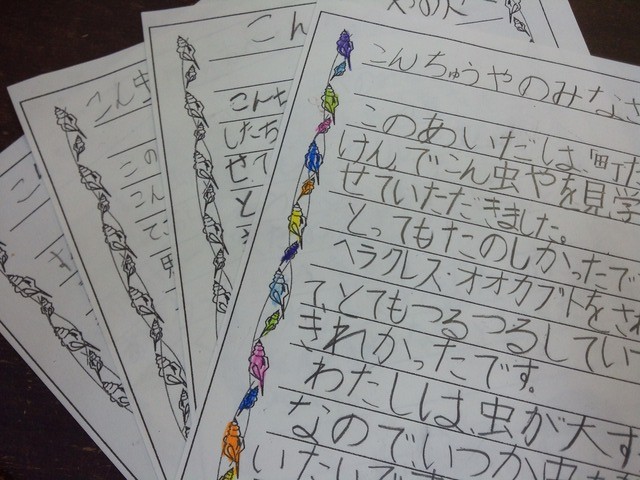 こんちゅうやのみなさ
このあいだは、町た
けんでこん虫やを見学
せていただきました。
とってもたのしかったで
ヘラクレス・オオカブトをさわ
て、とてもつるつるしてい
きれかったです。
わたしは、虫が大す
なのでいつか虫を
いたいです
こん
こんち
したち
せて
と
こんち
この
こん
で
こ